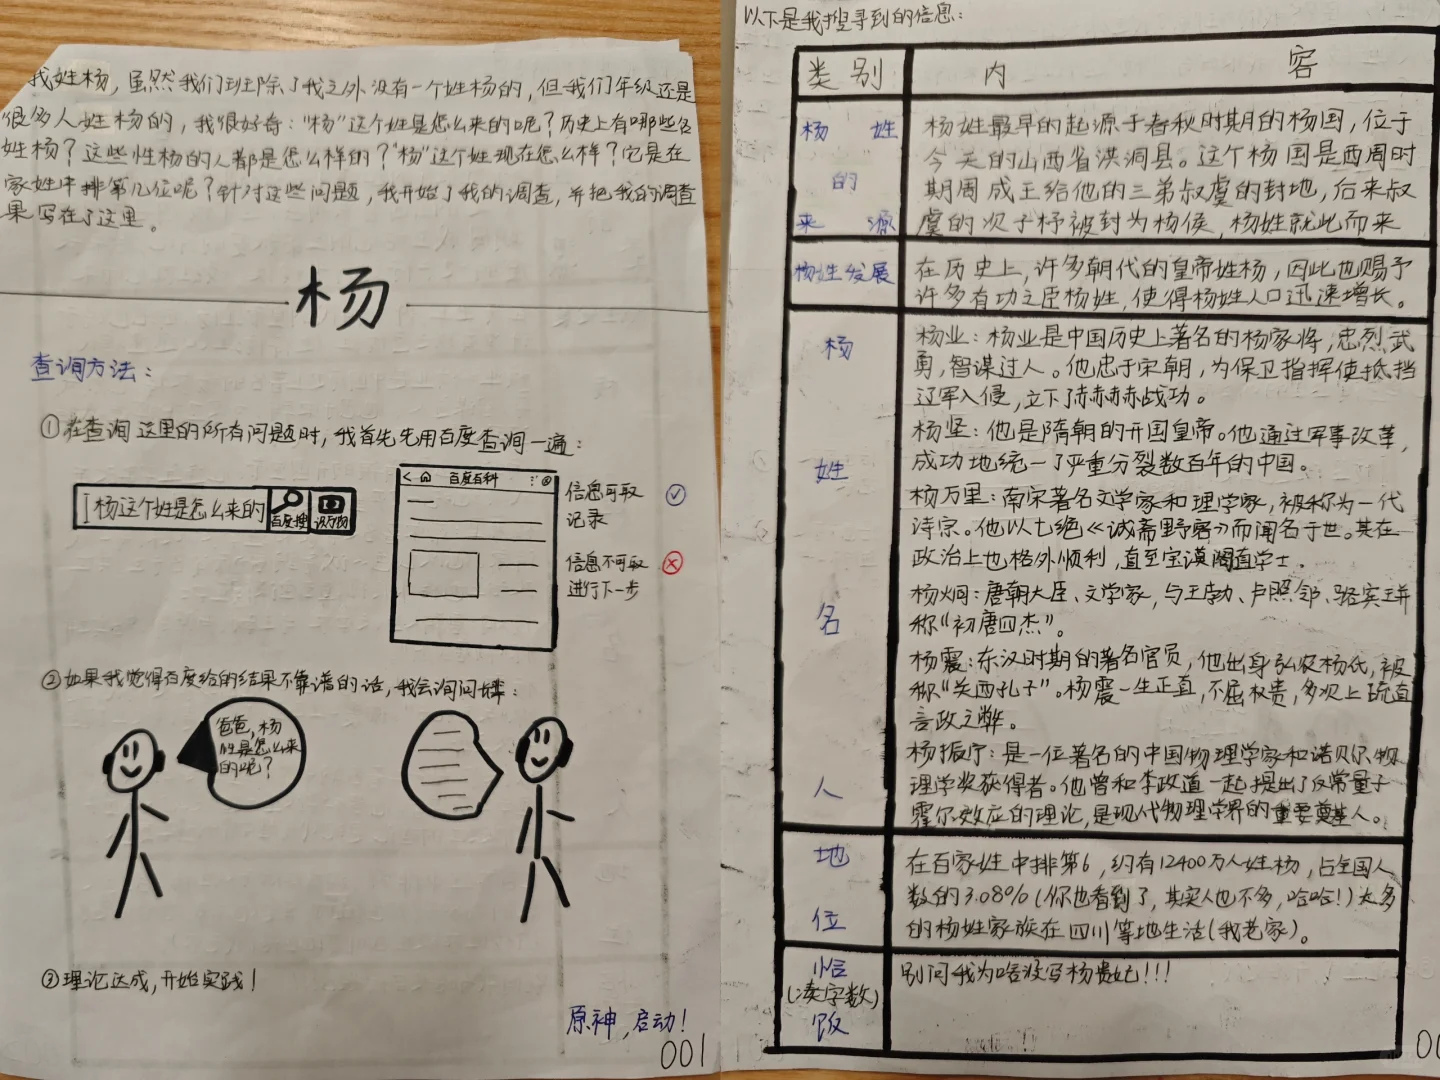 我姓杨，虽然我们班除了我之外没有一个姓杨的，但我们年级还是
很多人姓杨的，我很好奇："杨"这个姓是怎么来的呢？历史上有哪些名
姓杨？这些性杨的人都是怎么样的？"杨"这个姓现在怎么样？它是在
家姓中排第几位呢？针对这些问题，我开始了我的调查，并把我的调查
果写在了这里。
杨
查询方法：
①在查询这里的所有问题时，我首先先用百度查询一遍：
杨这个姓是怎么来的
百度搜
识万物
百度百科
信息可取
记录
信息不可取
进行下一步
②如果我觉得百度给的结果不靠谱的话，我会询问爸爸：
爸爸，杨
姓是怎么来
的呢？
③理论达成，开始实践！
原神，启动！
001
以下是我搜寻到的信息：
类别 内容
杨姓
的
来源
杨姓最早的起源于春秋时期的杨国，位于
今天的山西省洪洞县。这个杨国是西周时
期周成王给他的三弟叔虞的封地，后来叔
虞的次子杼被封为杨侯，杨姓就此而来
杨姓发展
在历史上，许多朝代的皇帝姓杨，因此也赐予
许多有功之臣杨姓，使得杨姓人口迅速增长。
杨
姓
名
人
杨业：杨业是中国历史上著名的杨家将，忠烈武
勇，智谋过人。他忠于宋朝，为保卫指挥使抵挡
辽军入侵，立下了赤赫赫战功。
杨坚：他是隋朝的开国皇帝。他通过军事改革，
成功地统一了严重分裂数百年的中国。
杨万里：南宋著名文学家和理学家，被称为一代
诗宗。他以七绝《诚斋野客》而闻名于世。其在
政治上也格外顺利，直至宝谟阁直学士。
杨炯：唐朝大臣、文学家，与王勃、卢照邻、骆宾王并
称"初唐四杰"。
杨震：东汉时期的著名官员，他出身弘农杨氏，被
称"关西孔子"。杨震一生正直，不屈权贵，多次上疏直
言政之弊。
杨振宁：是一位著名的中国物理学家和诺贝尔物
理学奖获得者。他曾和李政道一起提出了反常量子
霍尔效应的理论，是现代物理学界的重要奠基人。
地
位
在百家姓中排第6，约有12400万人姓杨，占全国人
数的3.08%（你也看到了，其实人也不多，哈哈！）大多
的杨姓家族在四川等地生活（我老家）。
恰
（凑字数）
饭
别问我为啥没写杨贵妃！！！
00